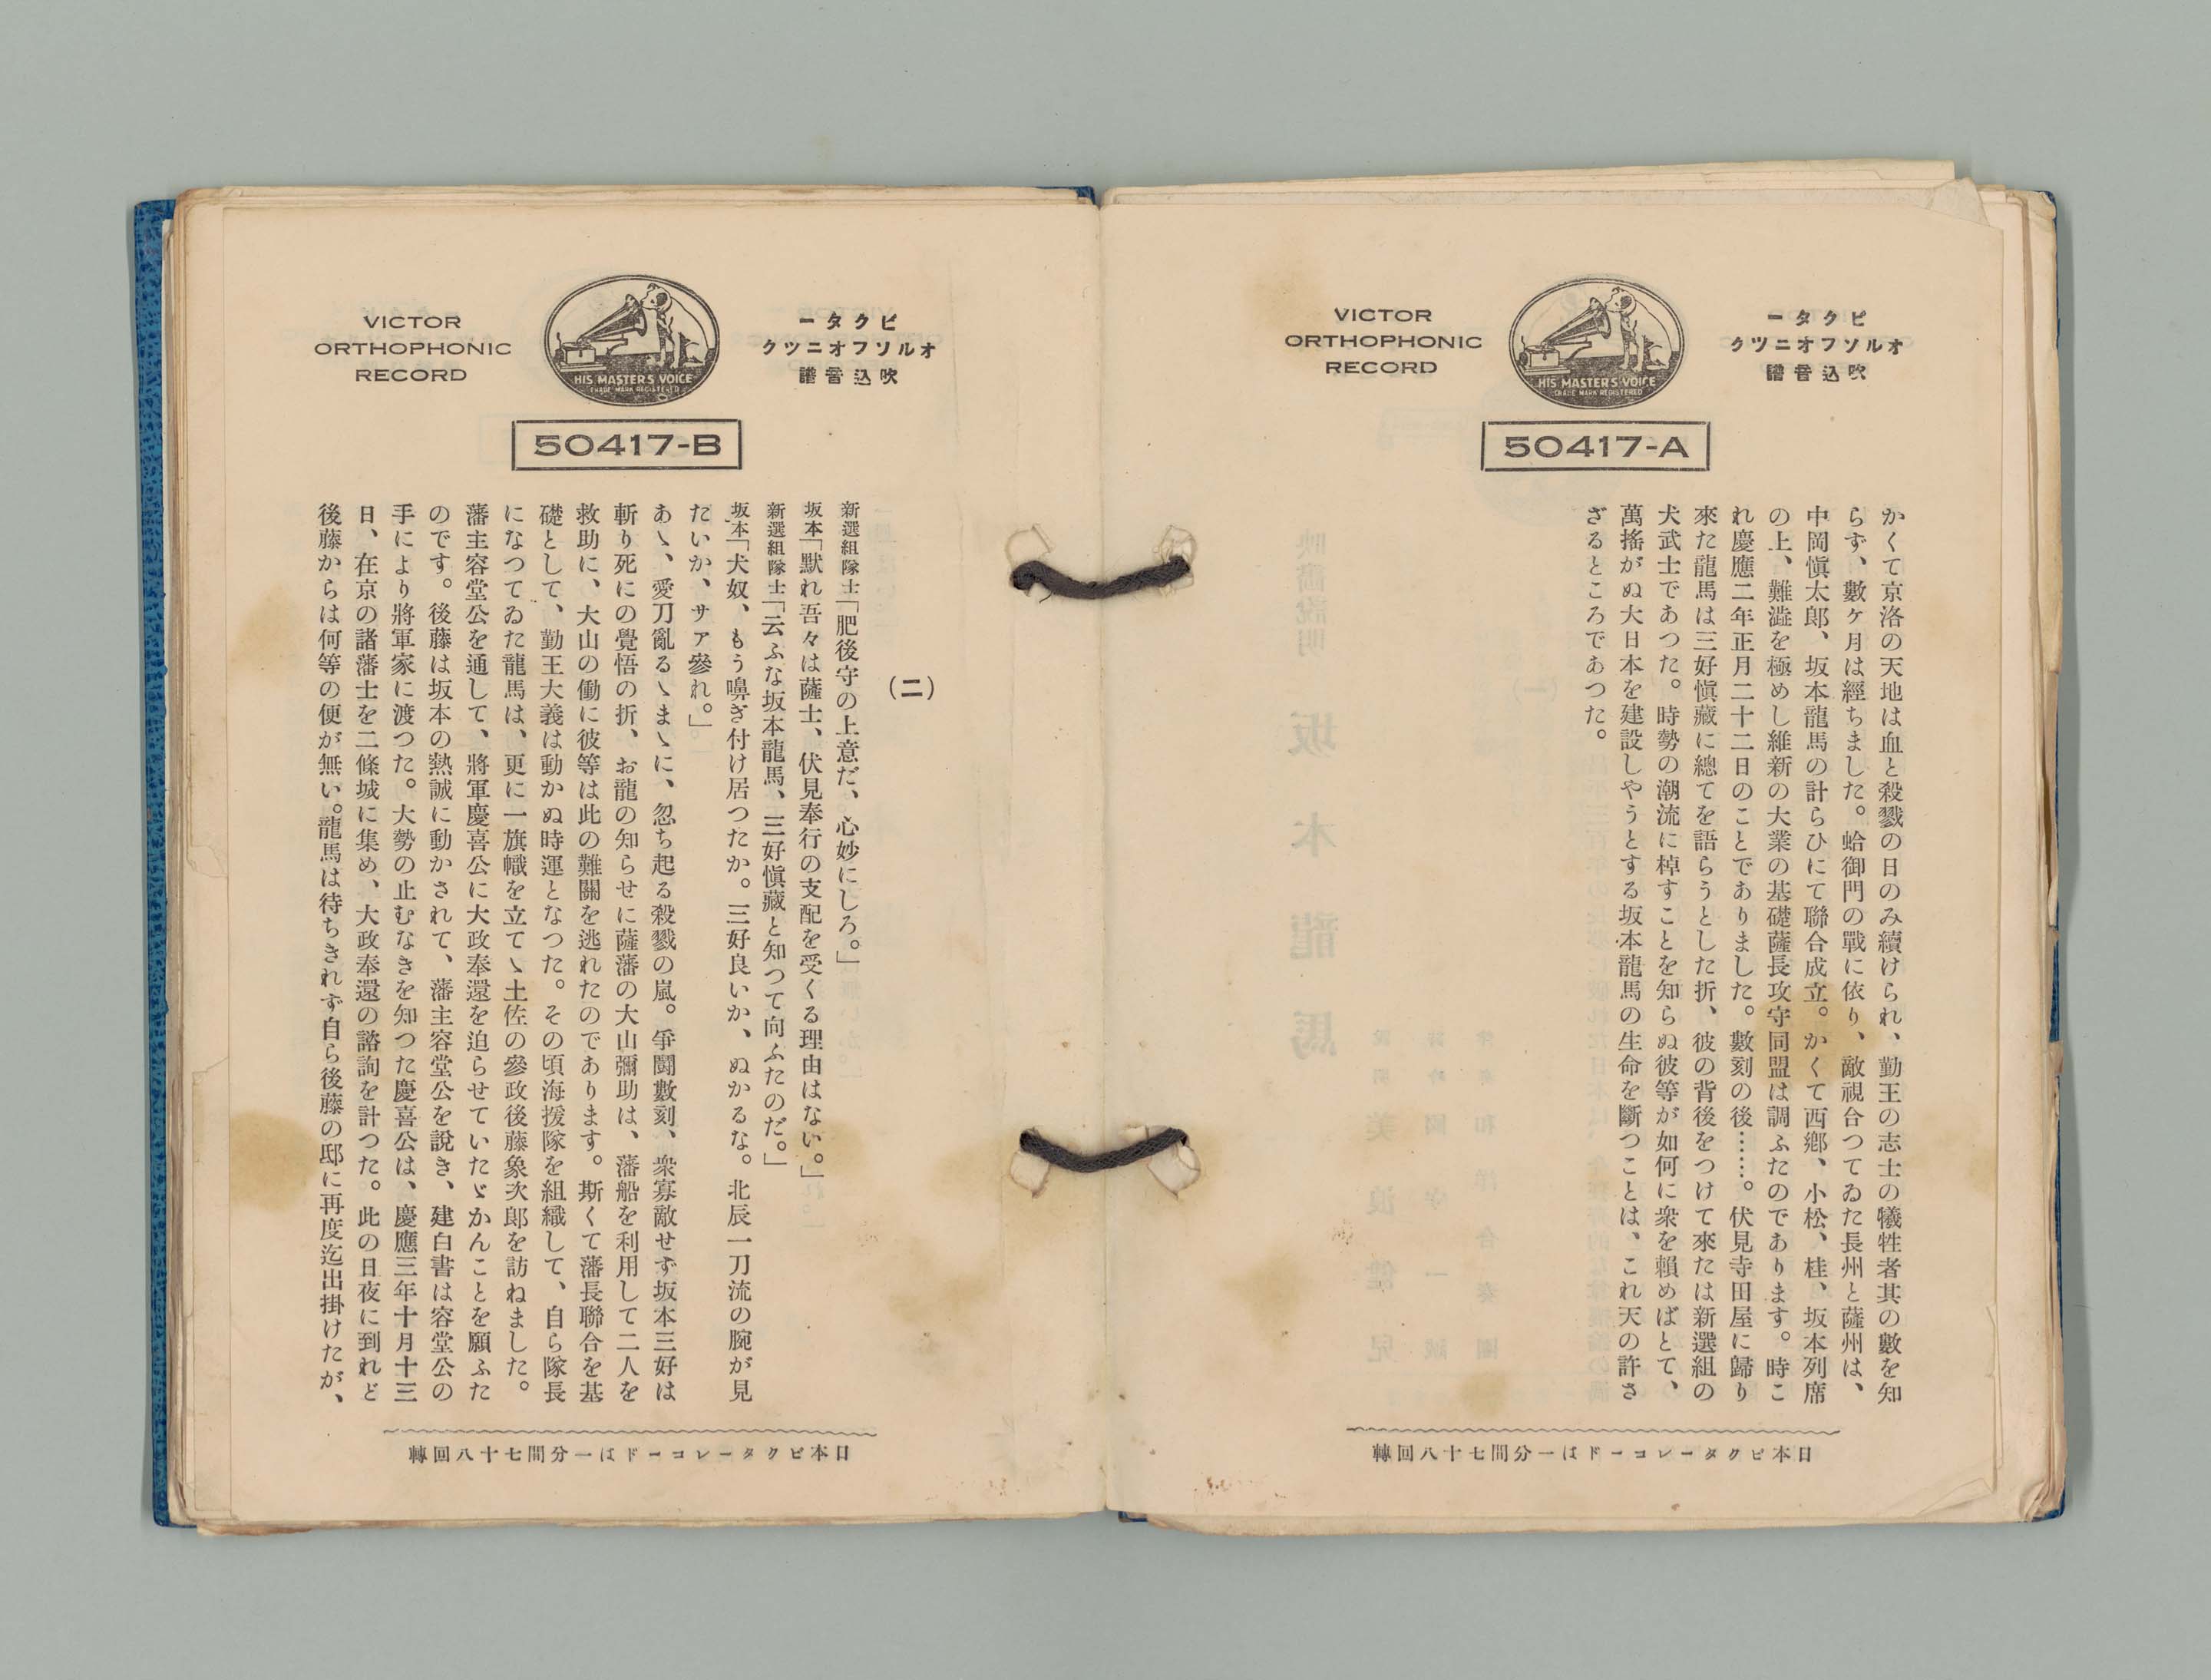 VICTOR
ORTHOPHONIC
RECORD
HIS MASTER'S VOICE
TRADE MARK REGISTERED
ビクター
オルソフオニツク
吹込音譜
50417-A
かくて京洛の天地は血と殺戮の日のみ續けられ、勤王の志士の犧牲者其の數を知
らず、數ケ月は經ちました。蛤御門の戰に依り、敵視合つてゐた長州と薩州は、
中岡愼太郎、坂本龍馬の計らひにて聯合成立。かくて西鄕、小松、桂、坂本列席
の上、難澁を極めし維新の大業の基礎薩長攻守同盟は調ふたのであります。時こ
れ慶應二年正月二十二日のことでありました。數刻の後……。伏見寺田屋に歸り
來た龍馬は三好愼藏に總てを語らうとした折、彼の背後をつけて來たは新選組の
犬武士であつた。時勢の潮流に棹すことを知らぬ彼等が如何に衆を頼めばとて、
萬搖がぬ大日本を建設しやうとする坂本龍馬の生命を斷つことは、これ天の許さ
ざるところであつた。
日本ビクターレコードは一分間七十八回轉
VICTOR
ORTHOPHONIC
RECORD
HIS MASTER'S VOICE
TRADE MARK REGISTERED
ビクター
オルソフオニツク
吹込音譜
50417-B
(二)
新選組隊士「肥後守の上意だ、心妙にしろ。」
坂本「默れ吾々は薩士、伏見奉行の支配を受くる理由はない。」
新選組隊士「云ふな坂本龍馬、三好愼藏と知つて向ふたのだ。」
坂本「犬奴、もう嗅ぎ付け居つたか。三好良いか、ぬかるな。北辰一刀流の腕が見
たいか、サァ參れ。」
あゝ、愛刀亂るゝまゝに、忽ち起る殺戮の嵐。爭鬪數刻、衆寡敵せず坂本三好は
斬り死にの覺悟の折、お龍の知らせに薩藩の大山彌助は、藩船を利用して二人を
救助に、大山の働に彼等は此の難關を逃れたのであります。斯くて藩長聯合を基
礎として、勤王大義は動かぬ時運となつた。その頃海援隊を組織して、自ら隊長
になつてゐた龍馬は、更に一旗幟を立てゝ土佐の參政後藤象次郎を訪ねました。
藩主容堂公を通して、將軍慶喜公に大政奉還を迫らせていたゞかんことを願ふた
のです。後藤は坂本の熱誠に動かされて、藩主容堂公を說き、建白書は容堂公の
手により將軍家に渡つた。大勢の止むなきを知つた慶喜公は、慶應三年十月十三
日、在京の諸藩士を二條城に集め、大政奉還の諮詢を計つた。此の日夜に到れど
後藤からは何等の便が無い。龍馬は待ちきれず自ら後藤の邸に再度迄出掛けたが、
日本ビクターレコードは一分間七十八回轉